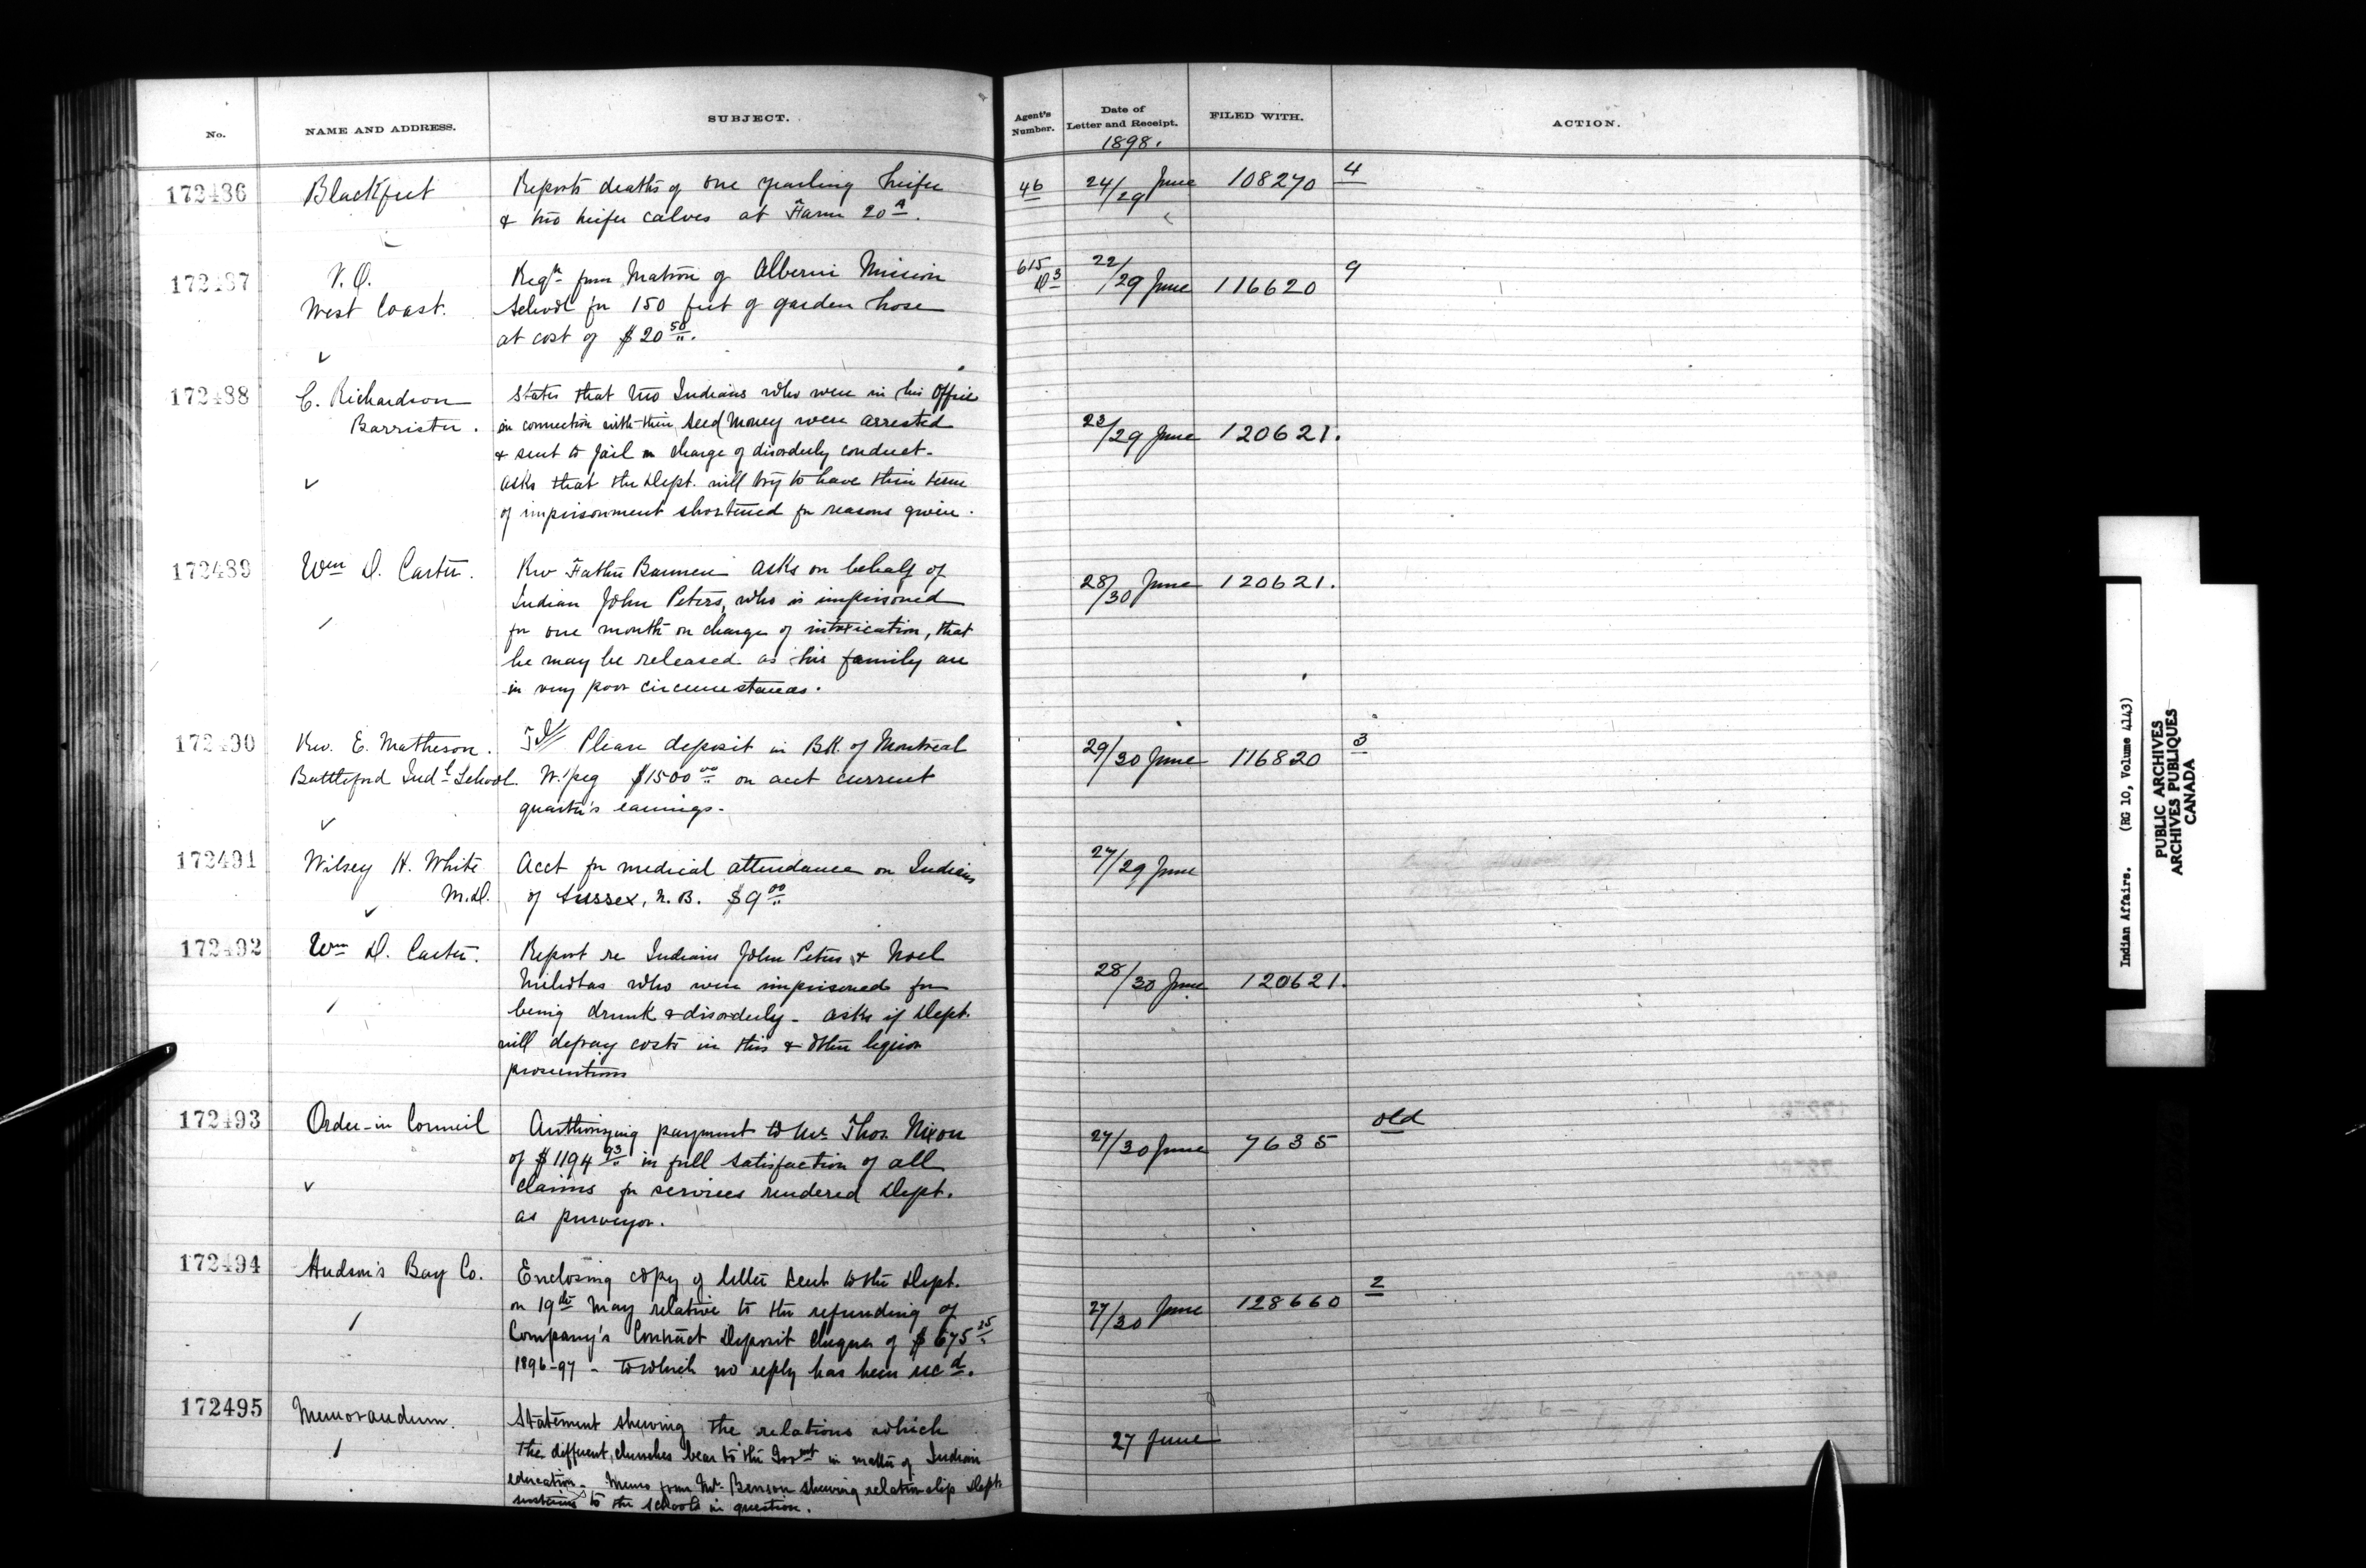 No. NAME AND ADDRESS. SUBJECT. Agent's Number. Date of Letter and Receipt. FILED WITH. ACTION.
1898.
172486 Blackfeet Reports deaths of one yearling heifer 46 24/29 June 108270 4
& two heifer calves at Farm 20 A.
172487 V.O. Reqn from Matron of Alberni Mission 615 D3 22/29 June 116620 9
West Coast. School for 150 feet of garden hose
at cost of $20 50.
172488 C. Richardson States that two Indians who were in his Office
Barrister. in connection with their Seed Money were arrested 23/29 June 120621.
& sent to jail on charge of disorderly conduct.
asks that the Dept. will try to have their term
of imprisonment shortened for reasons given.
172489 Wm D. Carter. Rev Father Bannen asks on behalf of 28/30 June 120621.
Indian John Peters, who is imprisoned
for one month on charge of intoxication, that
he may be released as his family are
in very poor circumstances.
172490 Rev. E. Matheson. Please deposit in Bk. of Montreal 29/30 June 116820 3
Battleford Indl School. W./peg $1500 00 on acct current
quarter's earnings.
172491 Wilsey H. White Acct for medical attendance on Indians 27/29 June
M.D. of Sussex, N.B. $9 00
172492 Wm D. Carter. Report re Indians John Peters & Noel 28/30 June 120621.
Nicholas who were imprisoned for
being drunk & disorderly - asks if Dept.
will defray costs in this & other liquor
prosecutions
172493 Order-in Council Authorizing payment to Mr. Thos. Nixon 27/30 June 7635 old
of $1194 93 in full satisfaction of all
claims for services rendered Dept.
as purveyor.
172494 Hudson's Bay Co. Enclosing copy of letter sent to the Dept. 27/30 June 128660 2
on 19th May relative to the refunding of
Company's Contract Deposit cheques of $675 25
1896-97 - to which no reply has been recd.
172495 Memorandum. Statement shewing the relations which 27 June
the different churches bear to the Govmt in matter of Indian
education. Memo from Mr. Benson shewing relationship Dept.
sustains to the schools in question.
Indian Affairs. (RG 10, Volume 4143)
PUBLIC ARCHIVES
ARCHIVES PUBLIQUES
CANADA